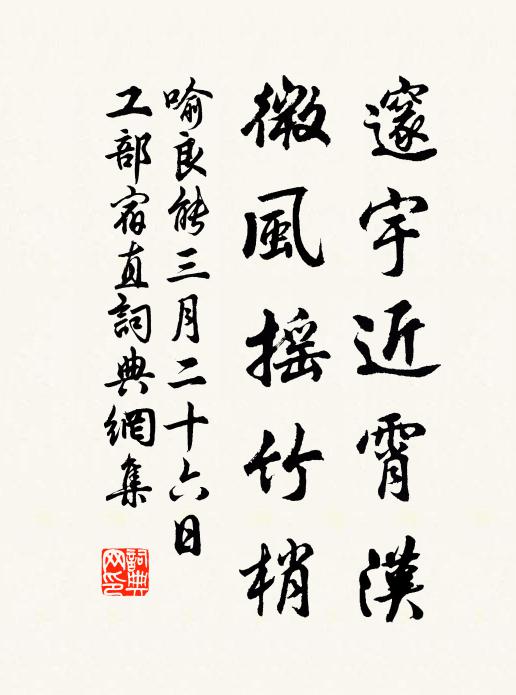 邃宇近霄漢
微風摇竹梢
喻良能三月二十六日
工部宿直詞典網集
詞典
网印